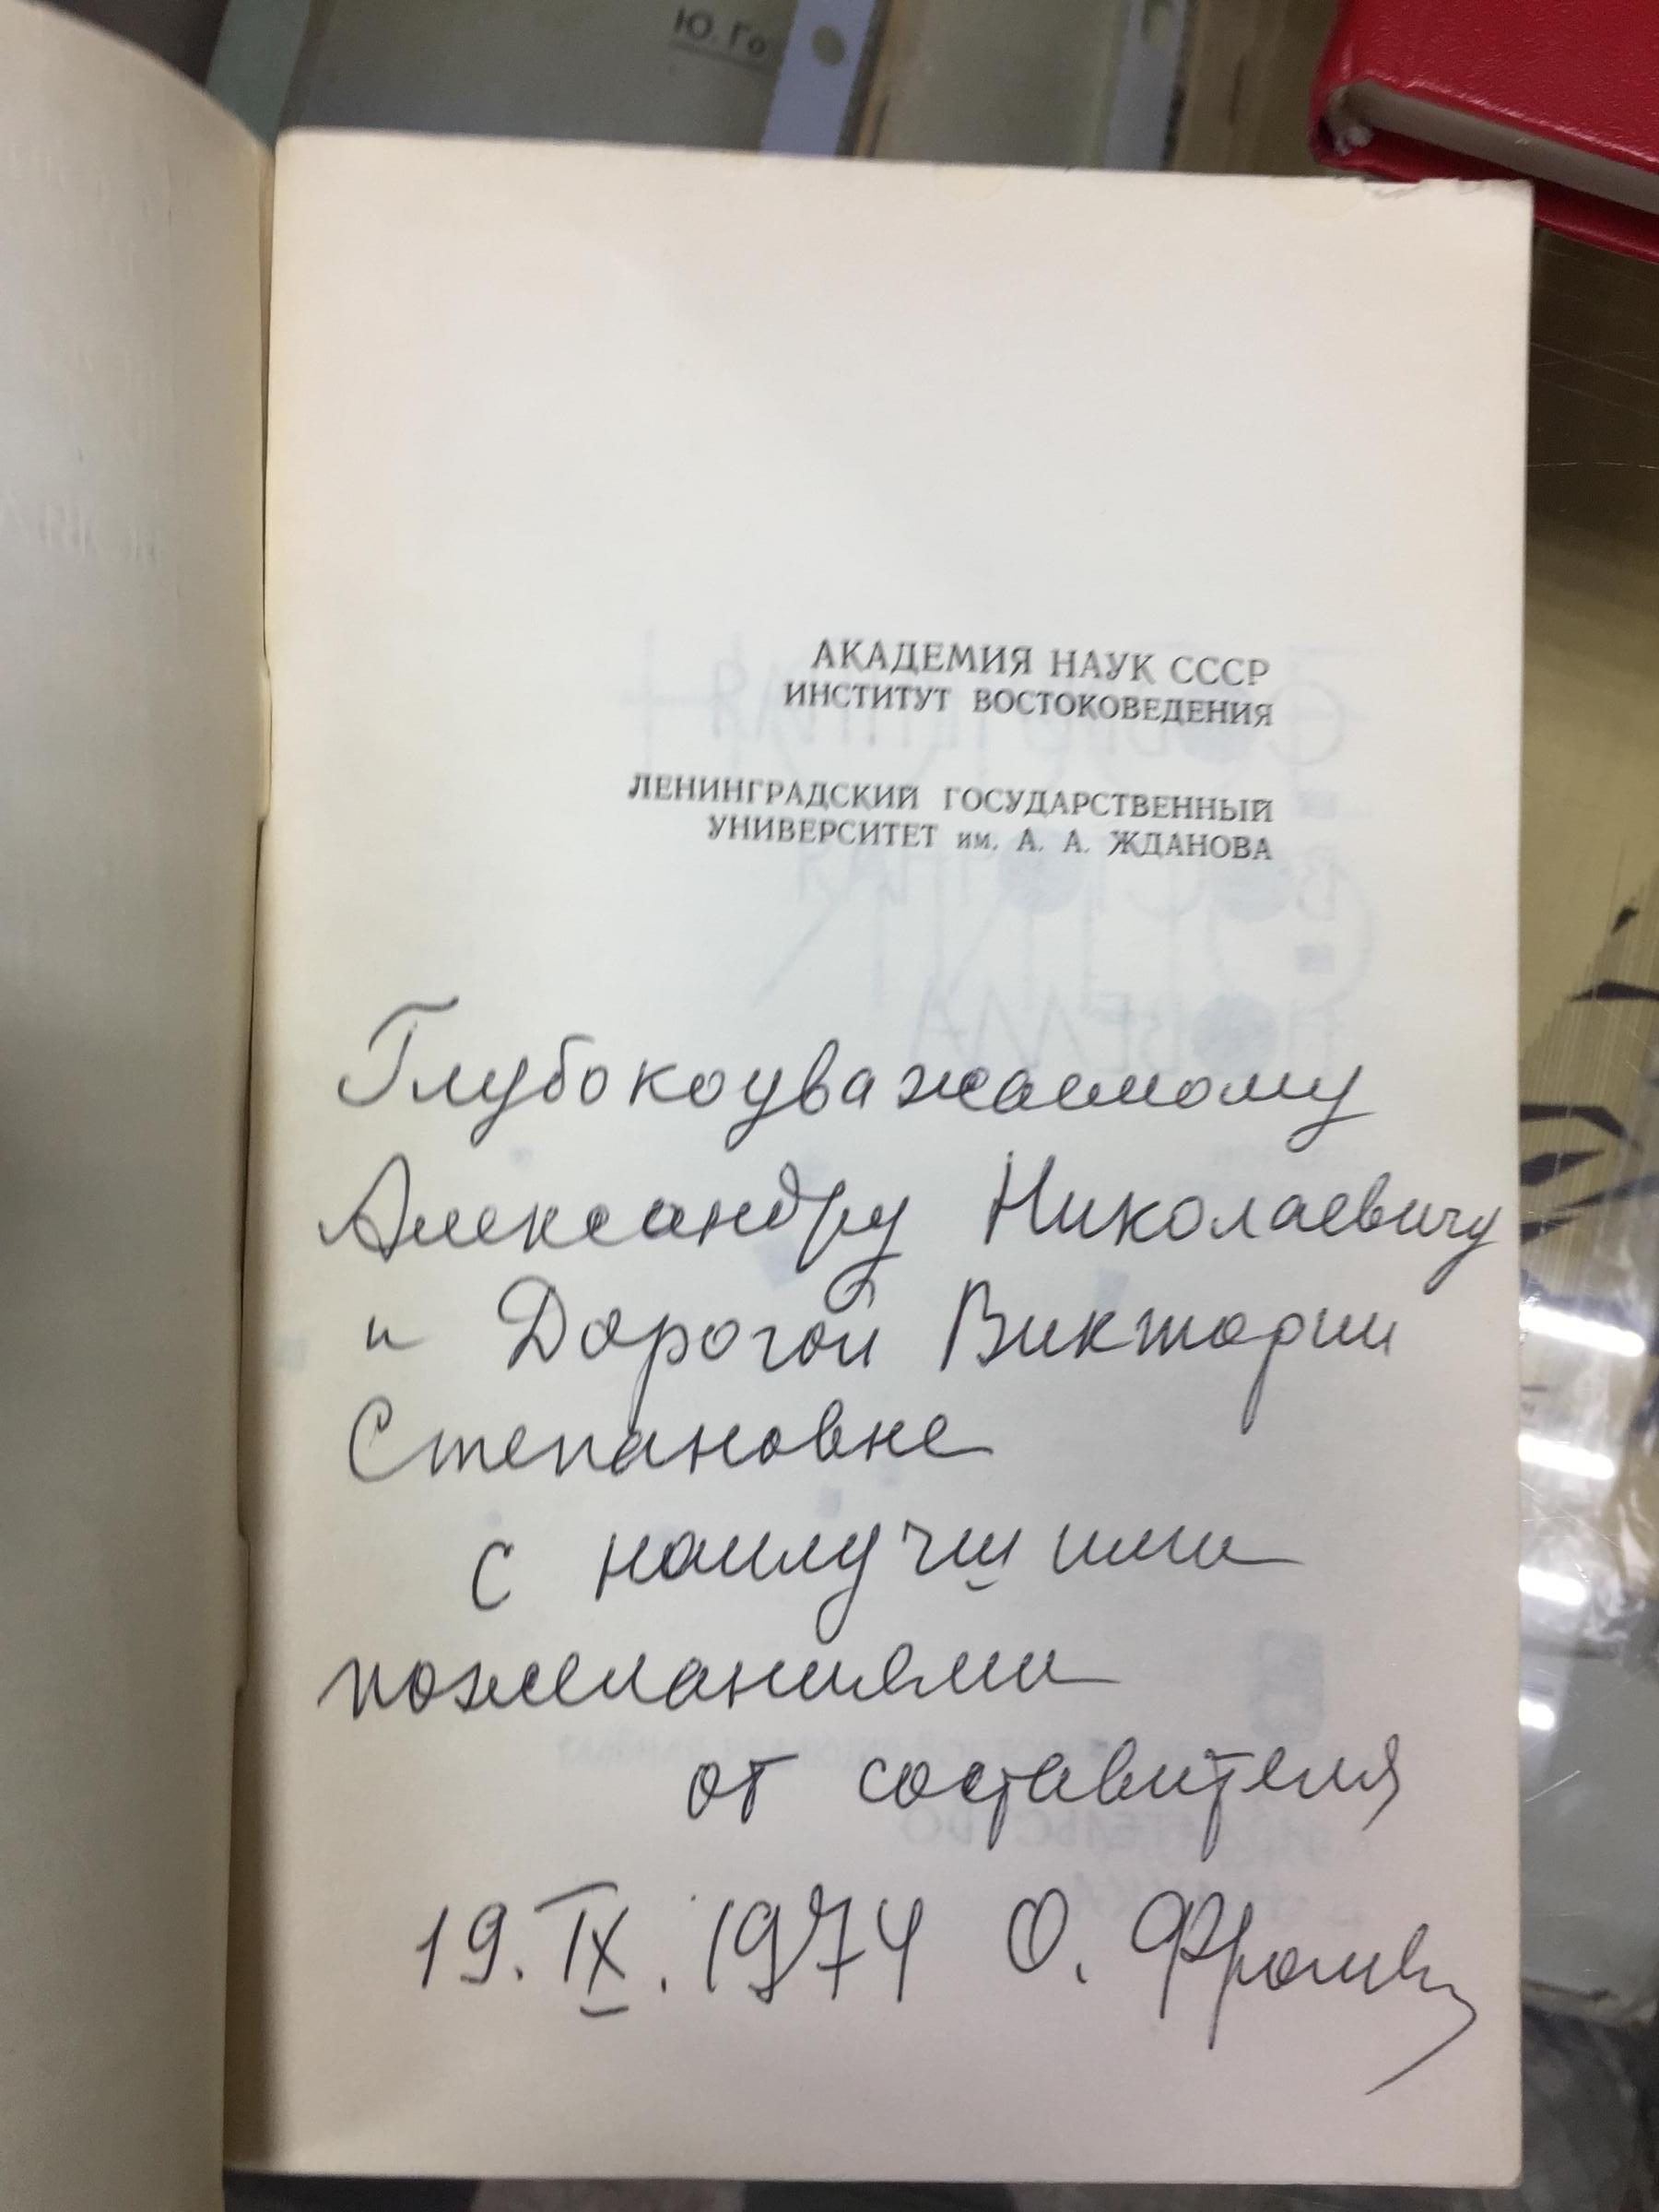 Ю. Го
АКАДЕМИЯ НАУК СССР
ИНСТИТУТ ВОСТОКОВЕДЕНИЯ
ЛЕНИНГРАДСКИЙ ГОСУДАРСТВЕННЫЙ
УНИВЕРСИТЕТ им. А. А. ЖДАНОВА
Глубокоуважаемому
Александру Николаевичу
и Дорогой Виктории
Степановне
с наилучшими
пожеланиями
от составителя
19. IX. 1974 О.